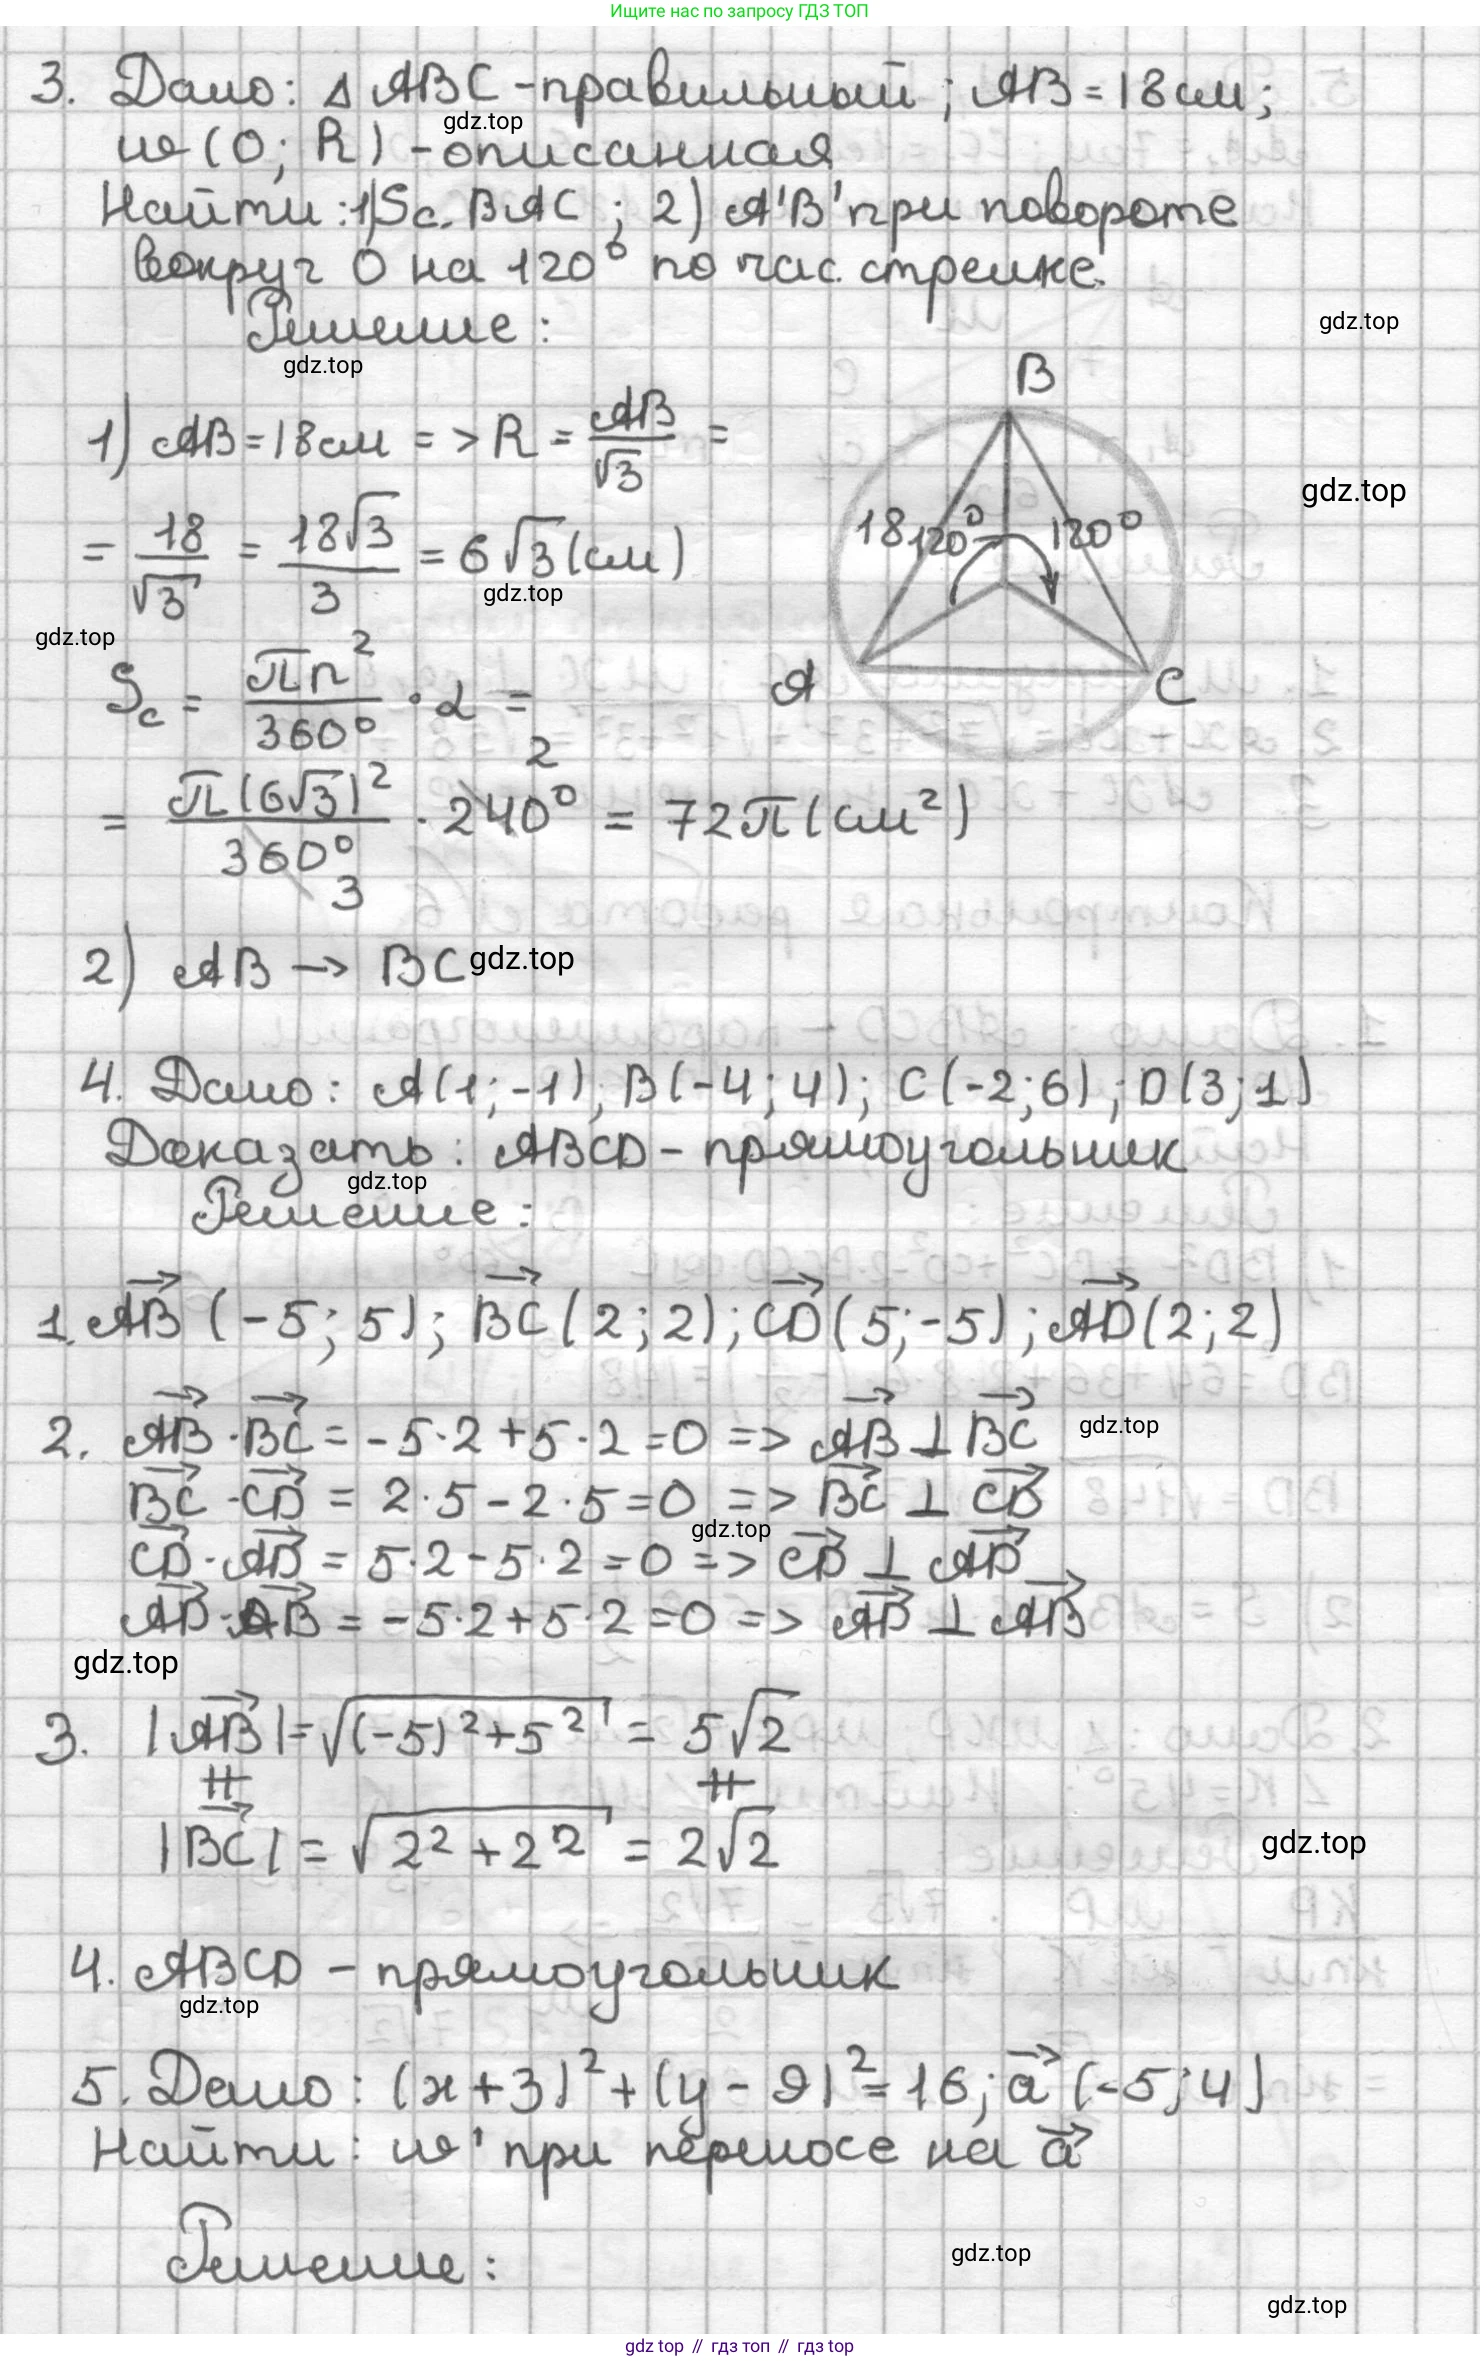 Ищите нас по запросу ГДЗ ТОП
3. Дано: Δ ABC - правильный; AB = 18 см;
gdz.top
ω (O; R) - описанная
Найти: 1) Sс. BAC; 2) A'B' при повороте
вокруг O на 120° по час. стрелке.
Решение:
gdz.top
gdz.top
B
1) AB = 18 см => R = AB/√3 =
gdz.top
18 120° 120°
= 18/√3 = 18√3/3 = 6√3 (см)
gdz.top
gdz.top
A C
Sс = πr²/360° · α =
= π(6√3)²/360° · 240° = 72π (см²)
2
3
2) AB → BC
gdz.top
4. Дано: A(1; -1), B(-4; 4); C(-2; 6); D(3; 1)
Доказать: ABCD - прямоугольник
gdz.top
Решение:
1. AB (-5; 5); BC (2; 2); CD (5; -5); AD (2; 2)
2. AB · BC = -5·2 + 5·2 = 0 => AB ⊥ BC
gdz.top
BC · CD = 2·5 - 2·5 = 0 => BC ⊥ CD
gdz.top
CD · AD = 5·2 - 5·2 = 0 => CD ⊥ AD
AD · AB = -5·2 + 5·2 = 0 => AD ⊥ AB
gdz.top
3. |AB| = √((-5)² + 5²) = 5√2
≠ ≠
|BC| = √(2² + 2²) = 2√2
gdz.top
4. ABCD - прямоугольник
gdz.top
5. Дано: (x + 3)² + (y - 9)² = 16; a (-5; 4)
Найти: ω' при переносе на a
Решение:
gdz.top
gdz.top
gdz top // гдз топ // гдз top